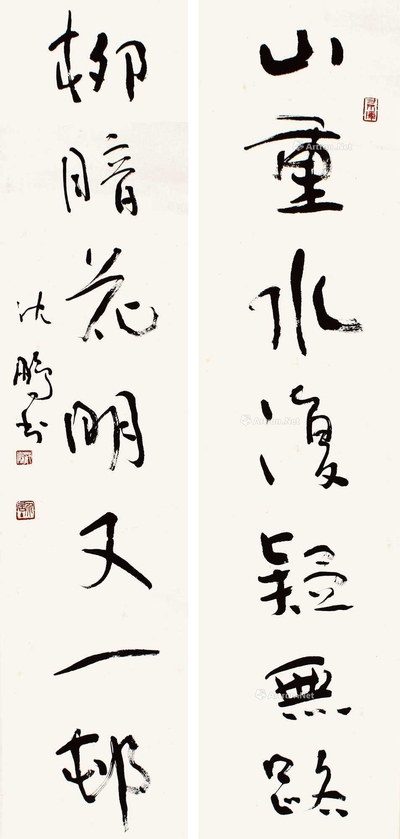 山重水復疑無路
柳暗花明又一邨
沈鵬書